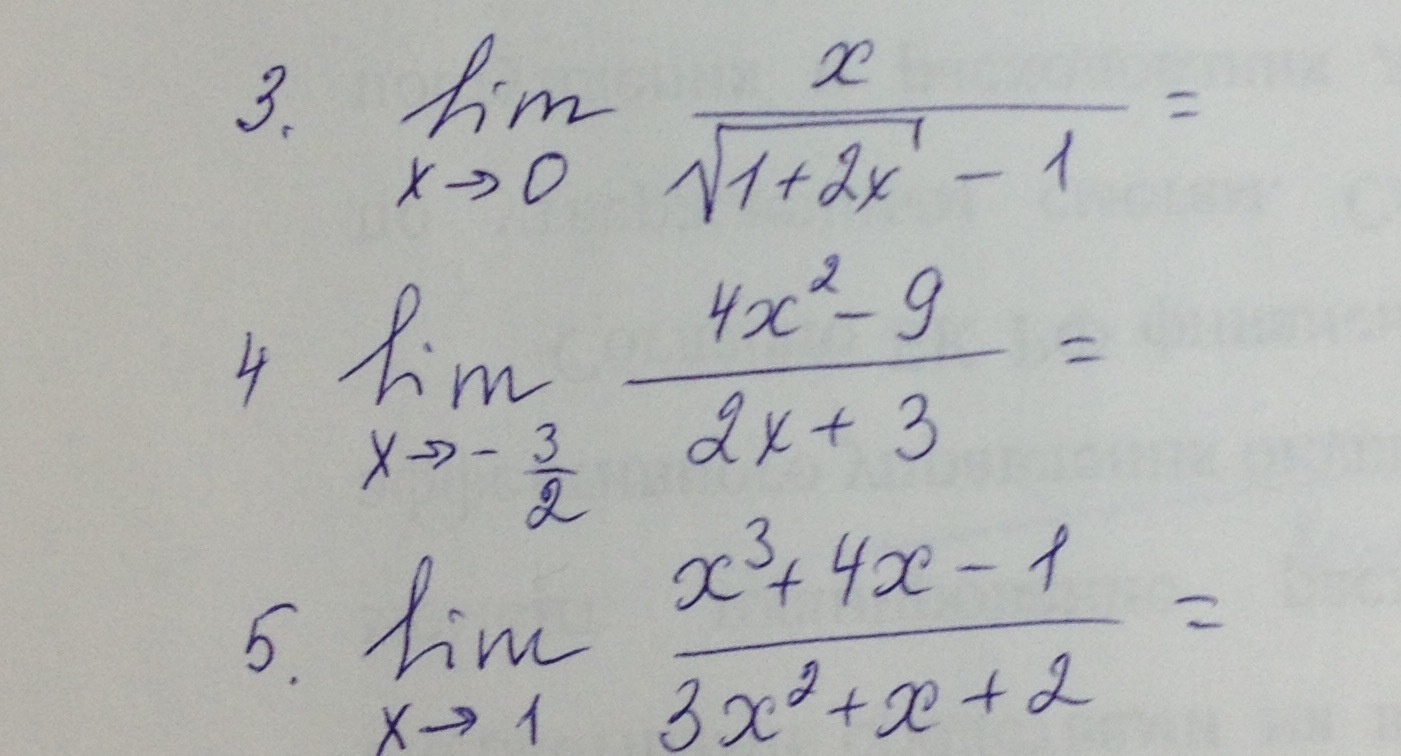 3. lim x→0 x / (√(1+2x) - 1) =
4 lim x→-3/2 (4x² - 9) / (2x + 3) =
5. lim x→1 (x³ + 4x - 1) / (3x² + x + 2) =